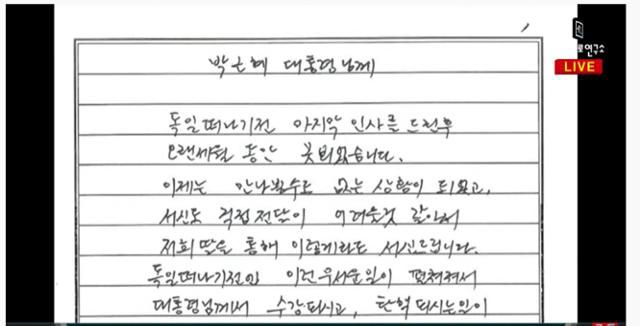 로연구소
LIVE
박근혜 대통령님께
독일떠나기전 마지막 인사를 드린후
오랜세월 동안 못뵈었습니다.
이제는 만나뵐수도 없는 상황이 되었고,
서신도 직접전달이 어려울것 같아서
저희 딸을 통해 이렇게라도 서신드립니다.
독일떠나기전엔 이런무서운일이 펼쳐져서
대통령님께서 수감되시고, 탄핵되시는일이